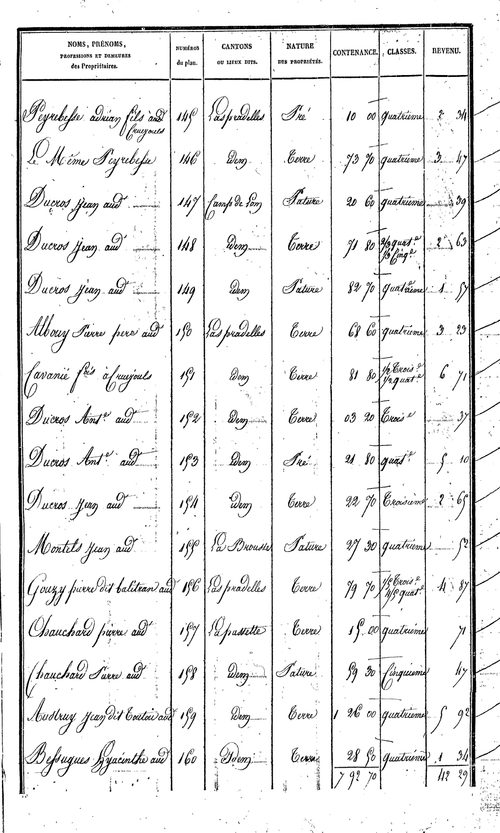 NOMS, PRÉNOMS, PROFESSIONS ET DEMEURES des Propriétaires. NUMÉROS du plan. CANTONS OU LIEUX DITS. NATURE DES PROPRIÉTÉS. CONTENANCE. CLASSES. REVENU.
Peyrebesse adrian fils aud Cruejouls 145 Laspradelles Pré 10 00 quatrieme 2 34
Le Même Peyrebesse 146 idem Terre 73 70 quatrieme 3 47
Ducros Jean aud 147 Camp de Pature 20 60 quatrieme 39
Ducros Jean aud 148 idem Terre 71 80 2/3 quate 1/3 Cinqe 2 63
Ducros Jean aud 149 idem Pature 82 70 quatrieme 1 57
Albouy Pierre pere aud 150 Laspradelles Terre 68 60 quatrieme 3 23
Cavanié à Cruejouls 151 idem Terre 81 80 1/2 Troise 1/2 quate 6 71
Ducros Ante aud 152 idem Terre 03 20 Troise 37
Ducros Ante aud 153 idem Pré 21 80 quate 5 10
Ducros Jean aud 154 idem Terre 22 70 Troisieme 2 65
Montels Jean aud 155 La Brousse Pature 27 30 quatrieme 52
Gouzy pierre dit aud 156 Laspradelles Terre 79 70 1/5 Troise 4/5 quate 4 87
Chauchard pierre aud 157 Terre 15 00 quatrieme 71
Chauchard Pierre aud 158 idem Pature 59 30 Cinquieme 47
Austruy Jean dit aud 159 idem Terre 1 26 00 quatrieme 5 92
Bessugues Hyacinthe aud 160 Idem Terre 28 50 quatrieme 1 34
7 92 70 42 29